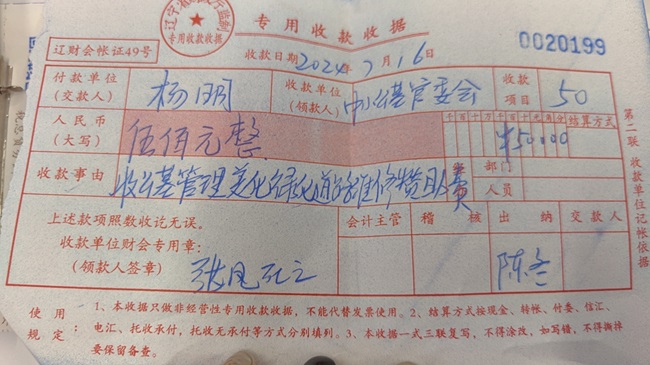 专用收款收据
专用收款收据
辽财会帐证49号
收款日期 2024年7月16
0020199
付款单位
(交款人)
杨明
收款单位
(领款人)
公墓管委会
收款
项目
50
人民币
(大写)
伍佰元整
千百十万千百十元角分
¥50000
结算方式
收款事由
收公墓管理美化绿化道路维修赞助费
部门
人员
上述款项照数收讫无误。
收款单位财会专用章:
(领款人签章)
会计主管
稽核
出纳
交款人
陈
第二联 收款单位记帐依据
使用
规定:
1、本收据只做非经营性专用收款收据,不能代替发票使用。2、结算方式按现金、转帐、付委、信汇、
电汇、托收承付,托收无承付等方式分别填列。3、本收据一式三联复写,不得涂改,如写错,不得撕掉
要保留备查。